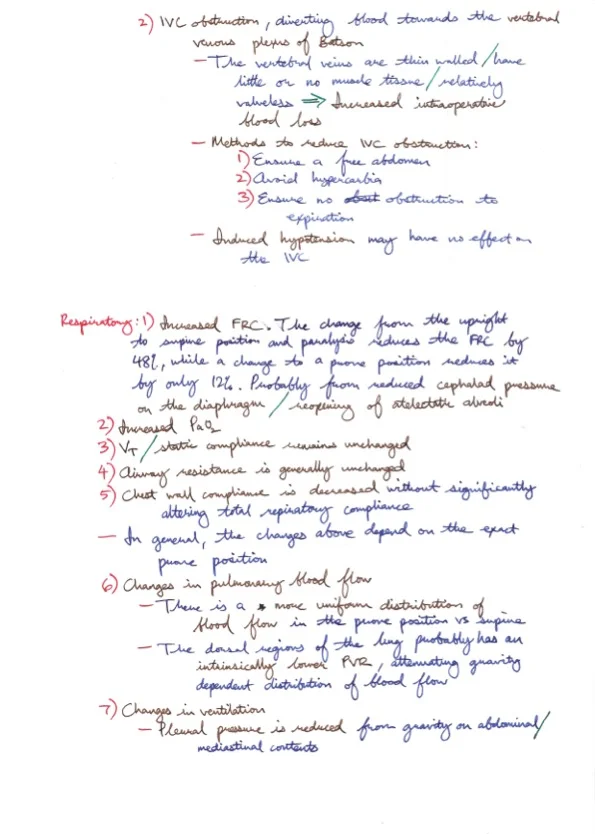 2) IVC obstruction, diverting blood towards the vertebral
venous plexus of Batson
- The vertebral veins are thin walled / have
little or no muscle tissue / relatively
valveless ⇒ Increased intraoperative
blood loss
- Methods to reduce IVC obstruction:
1) Ensure a free abdomen
2) Avoid hypercarbia
3) Ensure no obst obstruction to
expiration
- Induced hypotension may have no effect on
the IVC
Respiratory: 1) Increased FRC. The change from the upright
to supine position and paralysis reduces the FRC by
48%, while a change to a prone position reduces it
by only 12%. Probably from reduced cephalad pressure
on the diaphragm / reopening of atelectatic alveoli
2) Increased PaO2
3) VT / static compliance remains unchanged
4) Airway resistance is generally unchanged
5) Chest wall compliance is decreased without significantly
altering total respiratory compliance
- In general, the changes above depend on the exact
prone position
6) Changes in pulmonary blood flow
- There is a more uniform distribution of
blood flow in the prone position vs supine
- The dorsal regions of the lung probably has an
intrinsically lower PVR, attenuating gravity
dependent distribution of blood flow
7) Changes in ventilation
- Pleural pressure is reduced from gravity on abdominal/
mediastinal contents